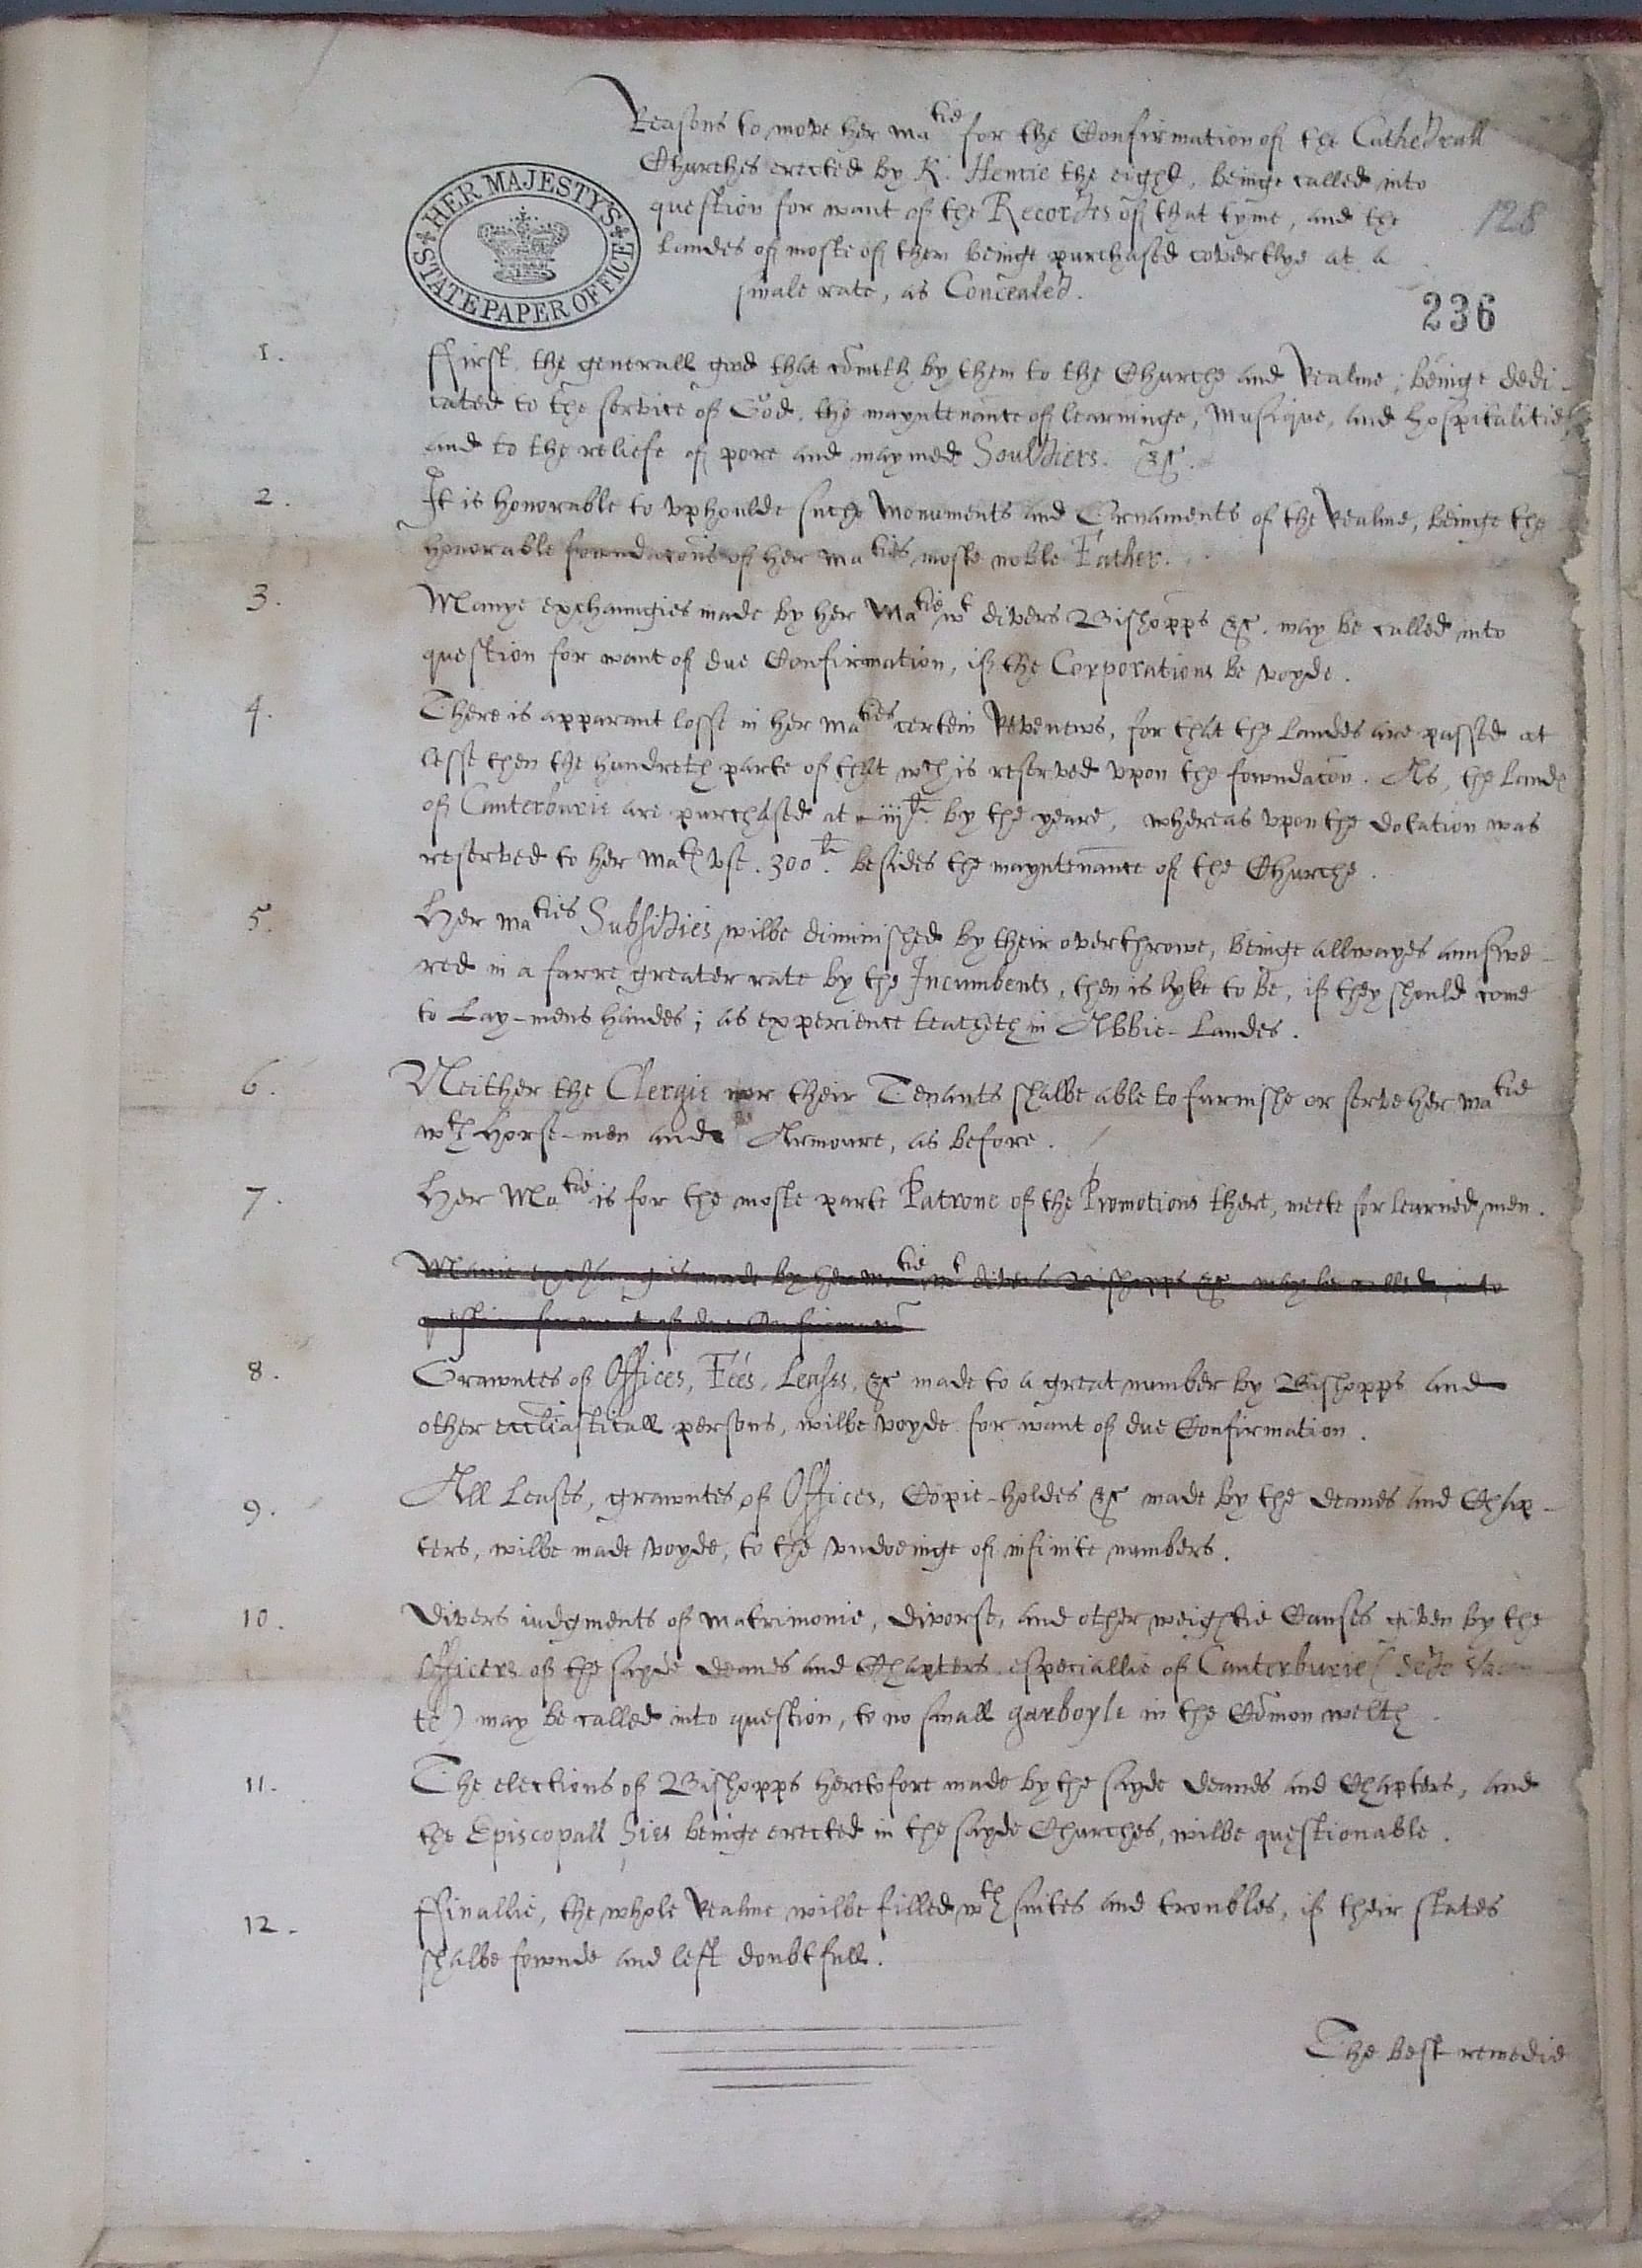 Reasons to move her Ma^tie for the Confirmation of the Cathedrall
Churches erected by K. Henrie the eight, beinge called into
question for want of the Recordes of that tyme, and the
128
landes of moste of them beinge purchased covertlye at a
smale rate, as Concealed.
HER MAJESTY'S STATE PAPER OFFICE
236
1. ffirst, the generall good that cometh by them to the Churche and Realme, beinge dedi-
cated to the service of God, the mayntenance of learninge, Musique, and hospitalitie,
and to the reliefe of pore and maymed Souldiers. &c.
2. It is honorable to uphoulde suche Monuments and Ornaments of the Realme, beinge the
honorable fowndacons of her Ma^ties moste noble Father.
3. Manye exchaungies made by her Ma^tie w^t divers Bishopps &c. may be called into
question for want of due Confirmation, if the Corporations be voyde.
4. There is apparant losse in her Ma^ties certein Revenews, for that the Landes are passed at
lesse then the hundreth parte of that w^ch is reserved vpon the fowndacon. As, the Lands
of Canterburie are purchased at iij^li. by the yeare, whereas vpon the dotation was
reserved to her Ma^ts vse. 300^li. besides the mayntenance of the Churche.
5. Her Ma^ties Subsidies wilbe diminished by their overthrowe, beinge allwayes aunswe-
red in a farre greater rate by the Incumbents, then is lyke to be, if they should come
to Lay-mens handes; as experience teacheth in Abbie-Landes.
6. Neither the Clergie nor their Tenants shalbe able to furnishe or serve her Ma^tie
w^th Horse-men and Armoure, as before.
7. Her Ma^tie is for the moste parte Patrone of the Promotions there, meete for learned men.
Manie exchaungies made by her Ma^tie w^t divers Bishopps &c. may be called into
question for want of due Confirmacon
8. Grawntes of Offices, Fées, Leases, &c made to a great number by Bishopps and
other eccliasticall persons, wilbe voyde for want of due Confirmation.
9. All Leases, grawntes of Offices, Copie-holdes &c made by the Deanes and Chap-
ters, wilbe made voyde, to the vndoeinge of infinite numbers.
10. Divers iudgments of Matrimonie, Divorse, and other weightie Causes given by the
Officers of the sayde Deanes and Chapters especiallie of Canterburie (Sede Vacan
te) may be called into question, to no small garboyle in the Comon welth.
11. The elections of Bishopps heretofore made by the sayde Deanes and Chapters, and
the Episcopall Sies beinge erected in the sayde Churches, wilbe questionable.
12. ffinallie, the whole Realme wilbe filled w^th suites and troubles, if their states
shalbe fownde and left doubtfull.
The best remedie